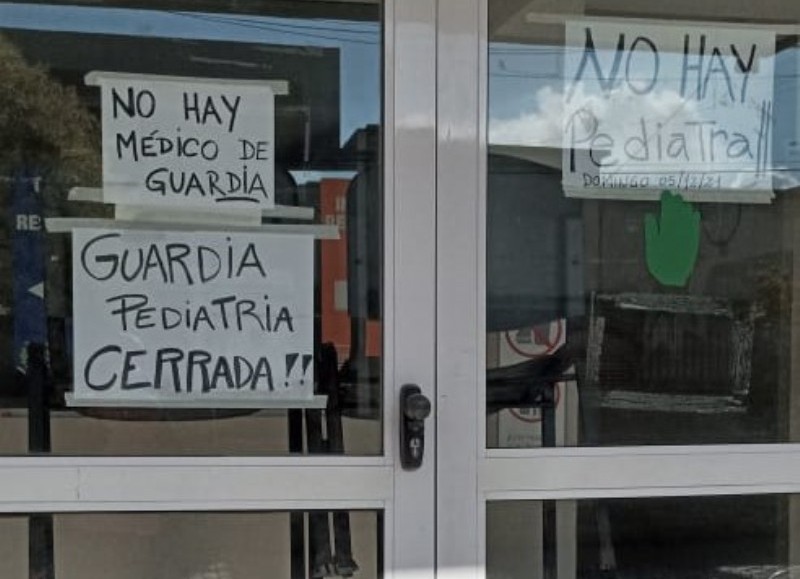 NO HAY
MÉDICO DE
GUARDIA
GUARDIA
PEDIATRIA
CERRADA!!
NO HAY
PediaTra!!
DOMINGO 05/12/21
RE